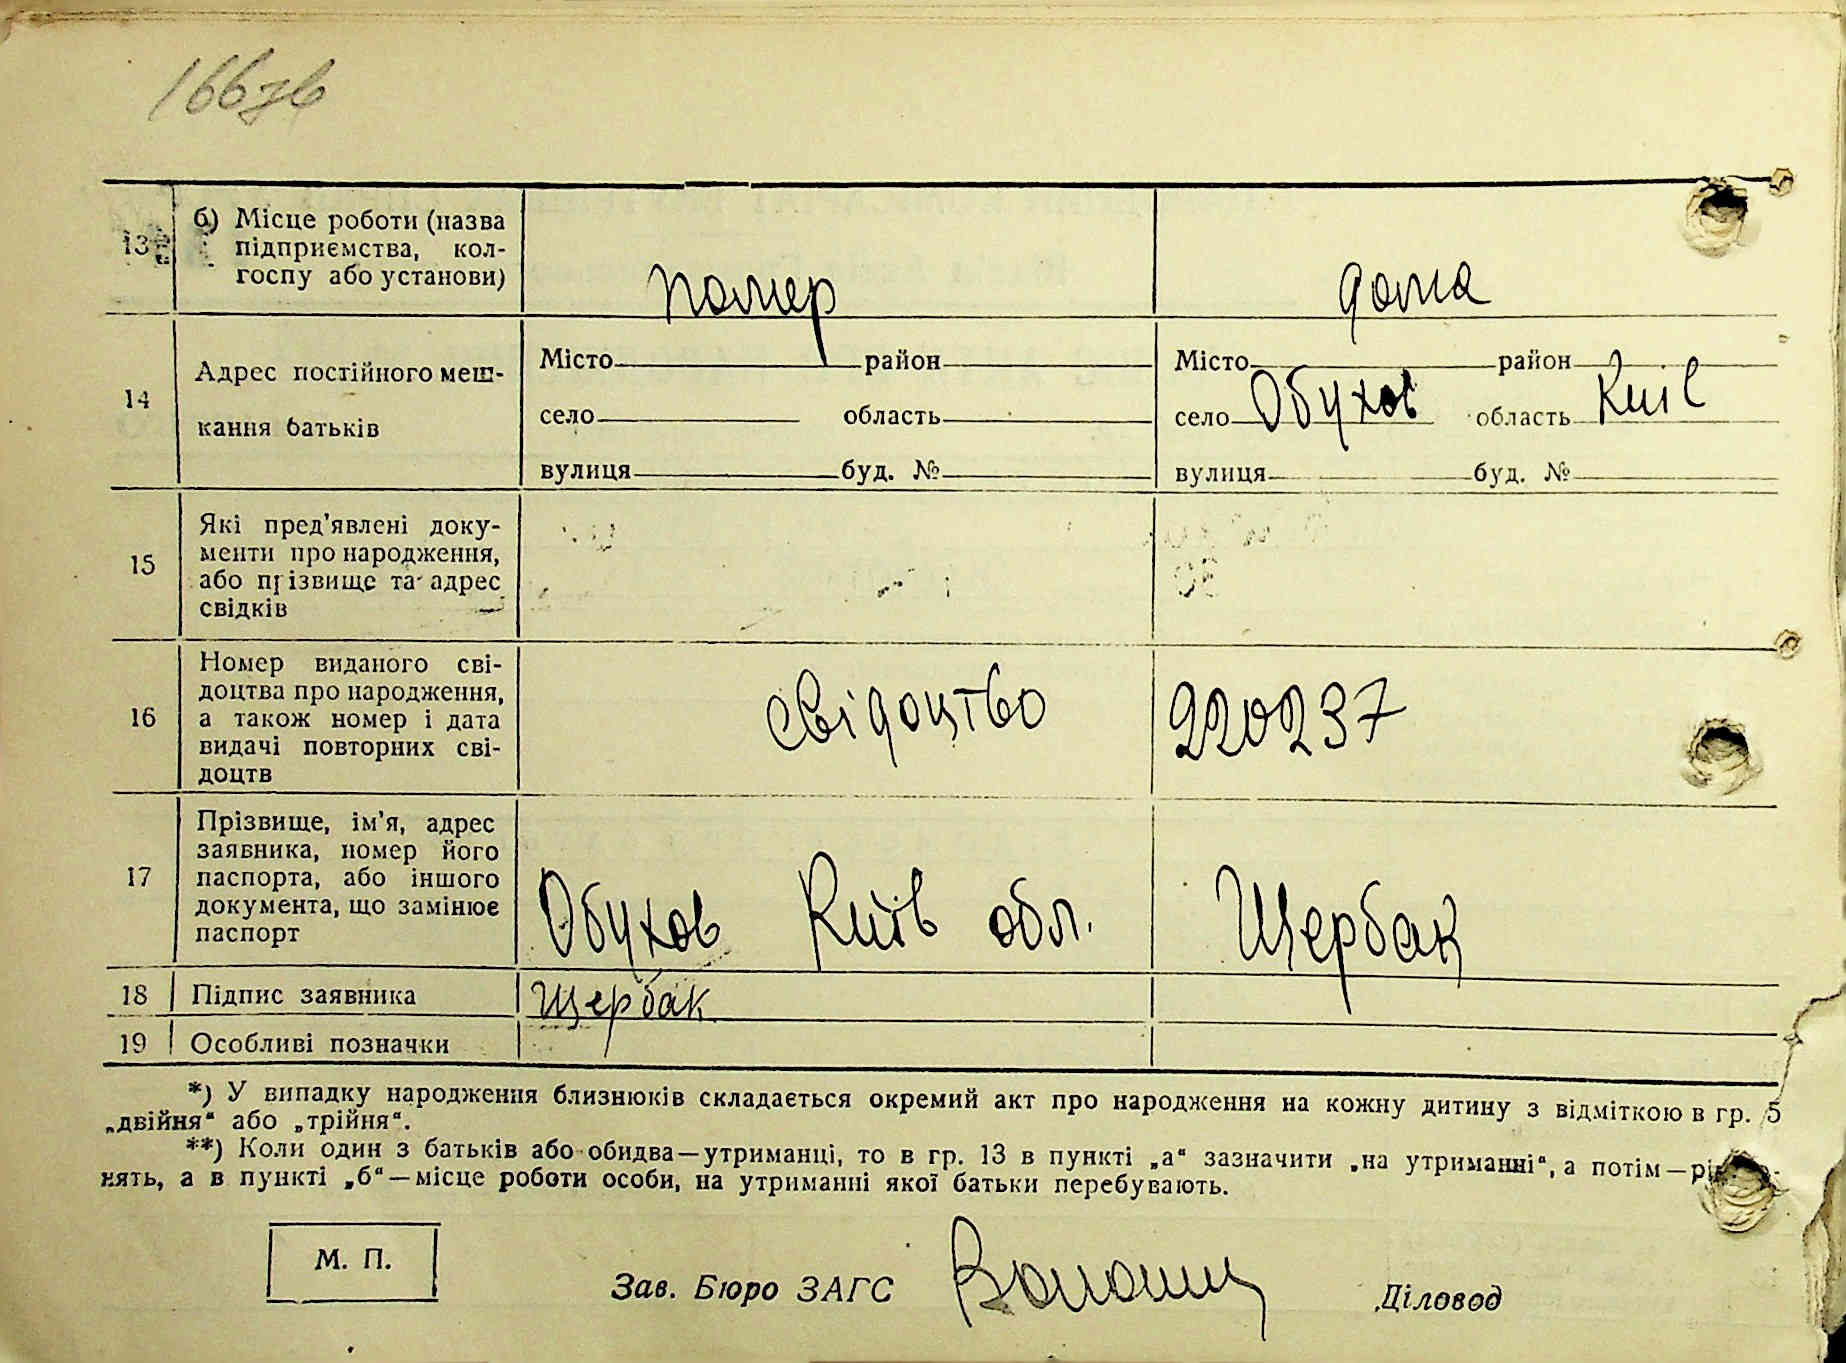 166зв
13
б) Місце роботи (назва
підприємства, кол-
госпу або установи)
помер
дома
14
Адрес постійного меш-
кання батьків
Місто район
село область
вулиця буд. №
Місто район
село Обухов область Київ
вулиця буд. №
15
Які пред'явлені доку-
менти про народження,
або прізвище та адрес
свідків
16
Номер виданого сві-
доцтва про народження,
а також номер і дата
видачі повторних сві-
доцтв
свідоцтво 220237
17
Прізвище, ім'я, адрес
заявника, номер його
паспорта, або іншого
документа, що замінює
паспорт
Обухов Київ обл. Щербак
18 Підпис заявника Щербак
19 Особливі позначки
*) У випадку народження близнюків складається окремий акт про народження на кожну дитину з відміткою в гр. 5
„двійня“ або „трійня“.
**) Коли один з батьків або обидва—утриманці, то в гр. 13 в пункті „а“ зазначити „на утриманні“, а потім—
нять, а в пункті „б“—місце роботи особи, на утриманні якої батьки перебувають.
М. П.
Зав. Бюро ЗАГС
Діловод